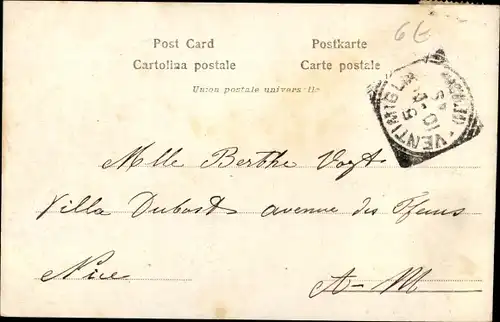 6E
Post Card Postkarte
Cartolina postale Carte postale
Union postale universelle
VENTIMIGLIA
Mlle Berthe Vogt
Villa Dubost avenue des
Nice A-M